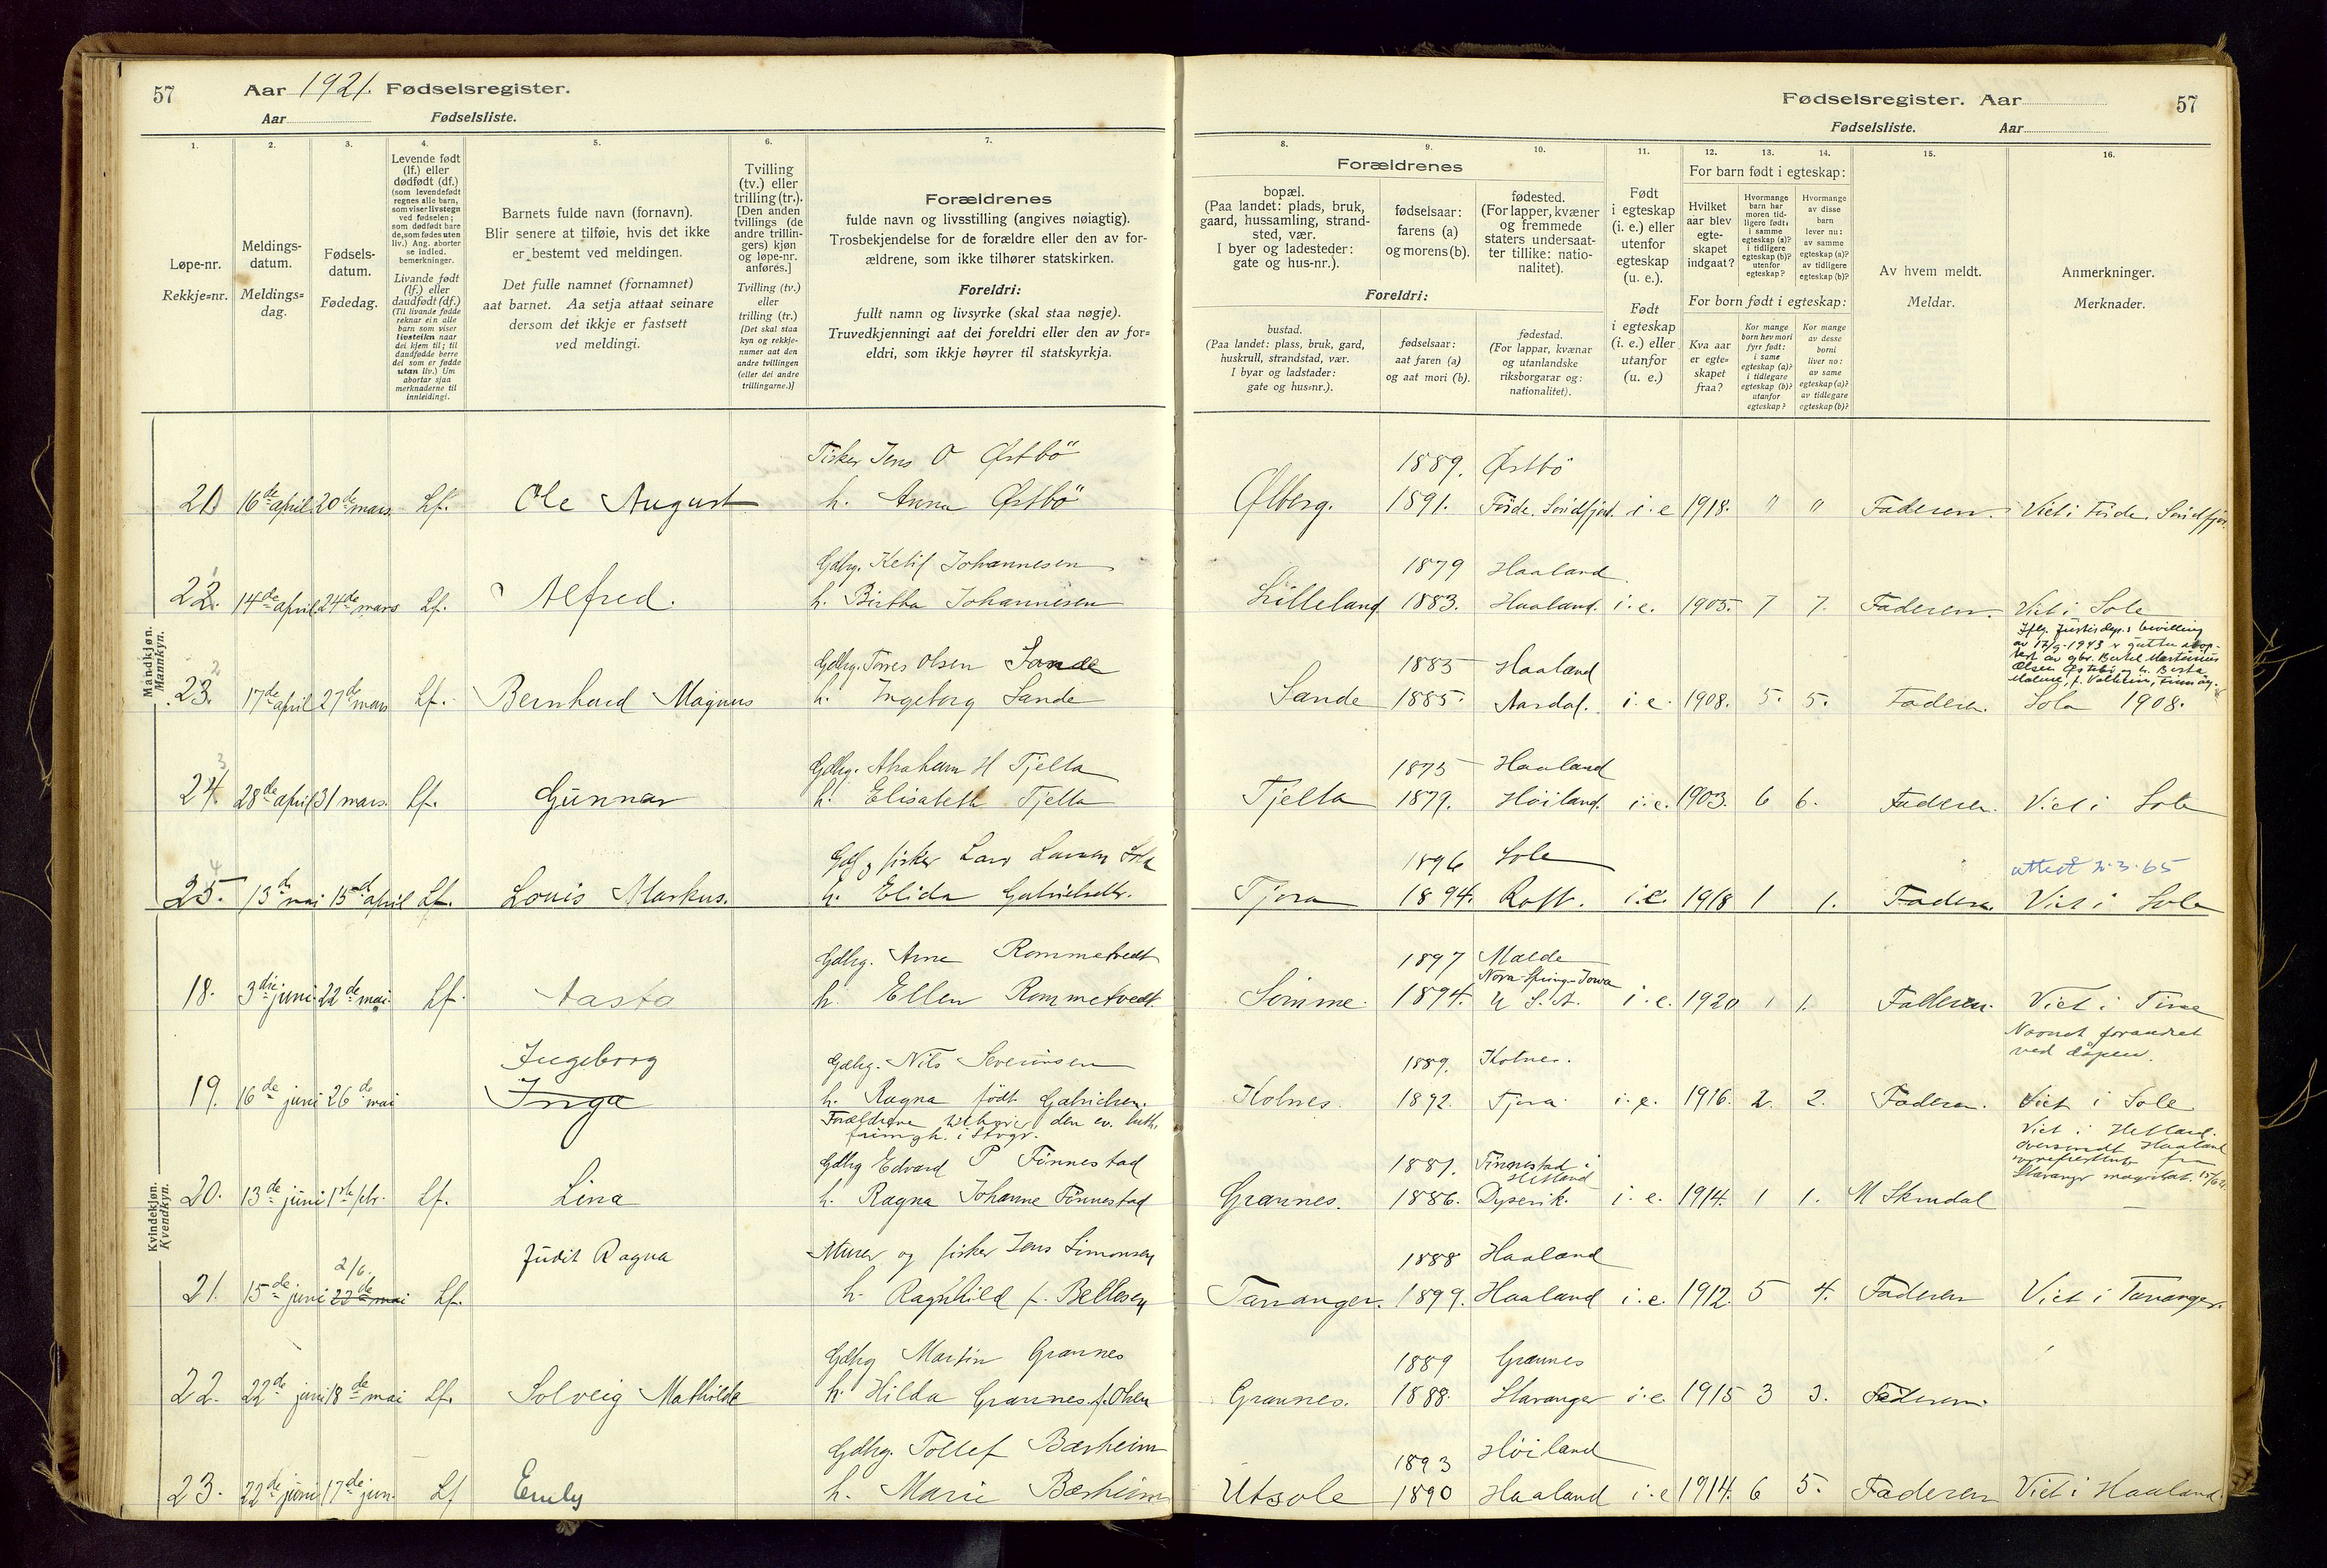 57 Aar 1921. Fødselsregister.
Aar Fødselsliste.
1.
Løpe-nr.
Rekkje=nr.
2.
Meldings-
datum.
Meldings=
dag.
3.
Fødsels-
datum.
Fødedag.
4.
Levende født
(lf.) eller
dødfødt (df.)
(som levendefødt
regnes alle barn,
som viser livstegn
ved fødselen;
som dødfødt bare
de, som fødes uten
liv.) Ang. aborter
se indled.
bemerkninger.
Livande født
(lf.) eller
daudfødt (df.)
(Til livande fødde
reknar ein alle
barn som viser
livsteikn naar
dei kjem til; til
daudfødde berre
dei som er fødde
utan liv.) Um
abortar sjaa
merknaderne til
innleidingi.
5.
Barnets fulde navn (fornavn).
Blir senere at tilføie, hvis det ikke
er bestemt ved meldingen.
Det fulle namnet (fornamnet)
aat barnet. Aa setja attaat seinare
dersom det ikkje er fastsett
ved meldingi.
6.
Tvilling
(tv.) eller
trilling (tr.).
[Den anden
tvillings (de
andre trillin-
gers) kjøn
og løpe-nr.
anføres.]
Tvilling (tv.)
eller
trilling (tr.)
[Det skal staa
kyn og rekkje-
numer aat den
andre tvillingen
(eller dei andre
trillingarne.)]
7.
Forældrenes
fulde navn og livsstilling (angives nøiagtig).
Trosbekjendelse for de forældre eller den av for-
ældrene, som ikke tilhører statskirken.
Foreldri:
fullt namn og livsyrke (skal staa nøgje).
Truvedkjenningi aat dei foreldri eller den av for=
eldri, som ikkje høyrer til statskyrkja.
Fødselsregister. Aar 57
Fødselsliste. Aar
8.
Forældrenes
bopæl.
(Paa landet: plads, bruk,
gaard, hussamling, strand-
sted, vær.
I byer og ladesteder:
gate og hus-nr.).
Foreldri:
bustad.
(Paa landet: plass, bruk, gard,
huskrull, strandstad, vær.
I byar og ladstader:
gate og hus=nr.).
9.
fødselsaar:
farens (a)
og morens (b).
fødselsaar:
aat faren (a)
og aat mori (b).
10.
fødested.
(For lapper, kvæner
og fremmede
staters undersaat-
ter tillike: natio-
nalitet).
fødestad.
(For lappar, kvænar
og utanlandske
riksborgarar og:
nationalitet).
11.
Født
i egteskap
(i. e.) eller
utenfor
egteskap
(u. e.).
Født
i egteskap
(i. e.) eller
utanfor
(u. e.)
12. 13. 14.
For barn født i egteskap:
Hvilket
aar blev
egte-
skapet
indgaat?
Hvormange
barn har
moren tid-
ligere født:
i samme
egteskap (a)?
i tidligere
egteskap (b)?
utenfor
egteskap?
Hvormange
av disse
barn
lever nu:
av samme
egteskap (a)?
av tidligere
egteskap (b)?
For born født i egteskap:
Kva aar
er egte=
skapet
fraa?
Kor mange
born hev mori
fyrr født:
i same
egteskap (a)?
i tidlegare
egteskap (b)?
utanfor
egteskap?
Kor mange
av desse
borni
liver no:
av same
egteskap (a)?
av tidlegare
egteskap (b)?
15.
Av hvem meldt.
Meldar.
16.
Anmerkninger.
Merknader.
Mandkjøn.
Mannkyn.
Fisker Jens O Østbö 1889. Østbö
21 16de april 20de mars. Lf. Ole August h. Anna Østbö Ølberg. 1891. Förde. Söndfjord. i. e 1918. " " Faderen. Viet i Förde, Söndfjor.
Gdbg. Ketil Johannesen 1879 Haaland
22. 14de april 24de mars Lf. Alfred. h. Birtha Johannesen Lilleland 1883. Haaland. i. e. 1905. 7 7. Faderen. Viet i Sole
Gdbg. Torres Olsen Sande 1883 Haaland
23. 17de april 27de mars Lf. Bernhard Magnus h. Ingeborg Sande Sande 1885. Aardal. i. e. 1908. 5. 5. Faderen. Sola 1908.
Gdbg. Abraham H Tjelta 1875 Haaland
24. 28de april 31 mars. Lf. Gunnar h. Elisabeth Tjelta Tjelta 1879. Höiland. i. e. 1903. 6 6. Faderen. Viet i Sole
fisker Lars Larsen Sola 1896 Sole attest 2.3.65
25. 13de mai 15de april Lf. Louis Markus. h. Elida Gabrielsdtr. Tjora 1894. Rott. i. e. 1918 1 1. Faderen. Viet i Sole
Kvindekjøn.
Kvendkyn.
Gdbg. Arne Rommetvedt 1897 Malde
18. 3die juni 22de mai. Lf. Aasta h. Ellen Rommetvedt. Sömme. 1894. Nora-Spring-Jowa U. S. A. i. e. 1920 1 1. Faderen. Viet i Time
Ingeborg Gdbg. Nils Severinsen 1889. Kolnes. Navnet forandret
ved dåpen.
19. 16de juni 26de mai Inga h. Ragna født Gabrielsen. Kolnes. 1892. Tjora i. e. 1916. 2. 2. Faderen. Viet i Sole
Forældrene tilhører den ev. luth.
frimgh. i Stvgr.
Gdbg Edvard P Finnestad 1881. Finnestad i Hetland Viet i Hetland.
20. 13de juni 1ste febr. Lf. Lina h. Ragna Johanne Finnestad Grannes. 1886. Dysevik. i. e. 1914. 1 1. M Skrudal
Judit Ragna Murer og fisker Jens Simonsen 1888 Haaland
2/6.
21. 15de juni 23de mai Lf. h. Ragnhild f. Bellesen Tananger. 1899. Haaland i. e. 1912. 5 4. Faderen Viet i Tananger.
Gdbg Martin Grannes 1889 Grannes
22. 22de juni 18de mai Lf. Solveig Mathilde h. Hilda Grannes f. Olsen Grannes. 1888. Stavanger i. e. 1915 3 3. Faderen.
Gdbg. Tollef Bærheim 1893 Höiland
23. 22de juni 17de jun. Lf Emily h. Marie Bærheim Utsole 1890 Haaland i. e 1914. 6 5. Faderen Viet i Haaland.